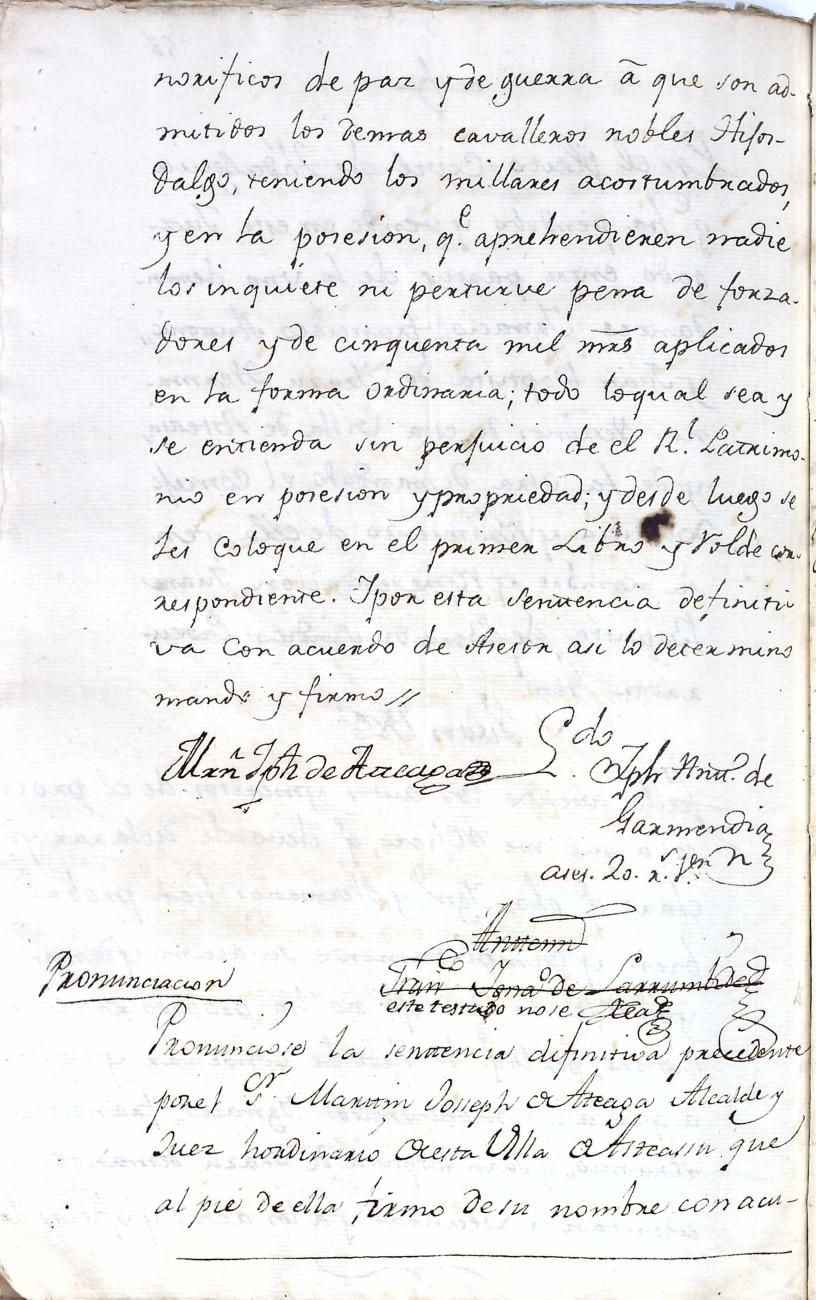 norificos de paz y de guerra â que son ad-
mitidos los demas cavalleros nobles Hijos-
dalgo, teniendo los millares acostumbrados,
y en la posesion, q.e aprehendieren nadie
los inquiete ni perturve pena de forza-
dores y de cinquenta mil mrs aplicados
en la forma ordinaria; todo lo qual sea y
se entienda sin perjuicio de el R.l Patrimo-
nio en posesion y propriedad; y desde luego se
les coloque en el primer Libro y Rolde cor-
respondiente. I por esta sentencia definiti
va con acuerdo de Asesor asi lo determino
mando y firmo //
Mrñ Jph de Ateaga L.do Jph Antt.o de
Garmendia
ases.
Anttemi
Fran.co Igna.o de Larrumbide
este testado no se lea
Pronunciacion
Pronunciose la senttencia difinitiva precedente
por el S.r Marttin Josseph de Ateaga Alcalde y
Juez hordinario de esta Villa de Asteassu que
al pie de ella firmo de su nombre con acu-